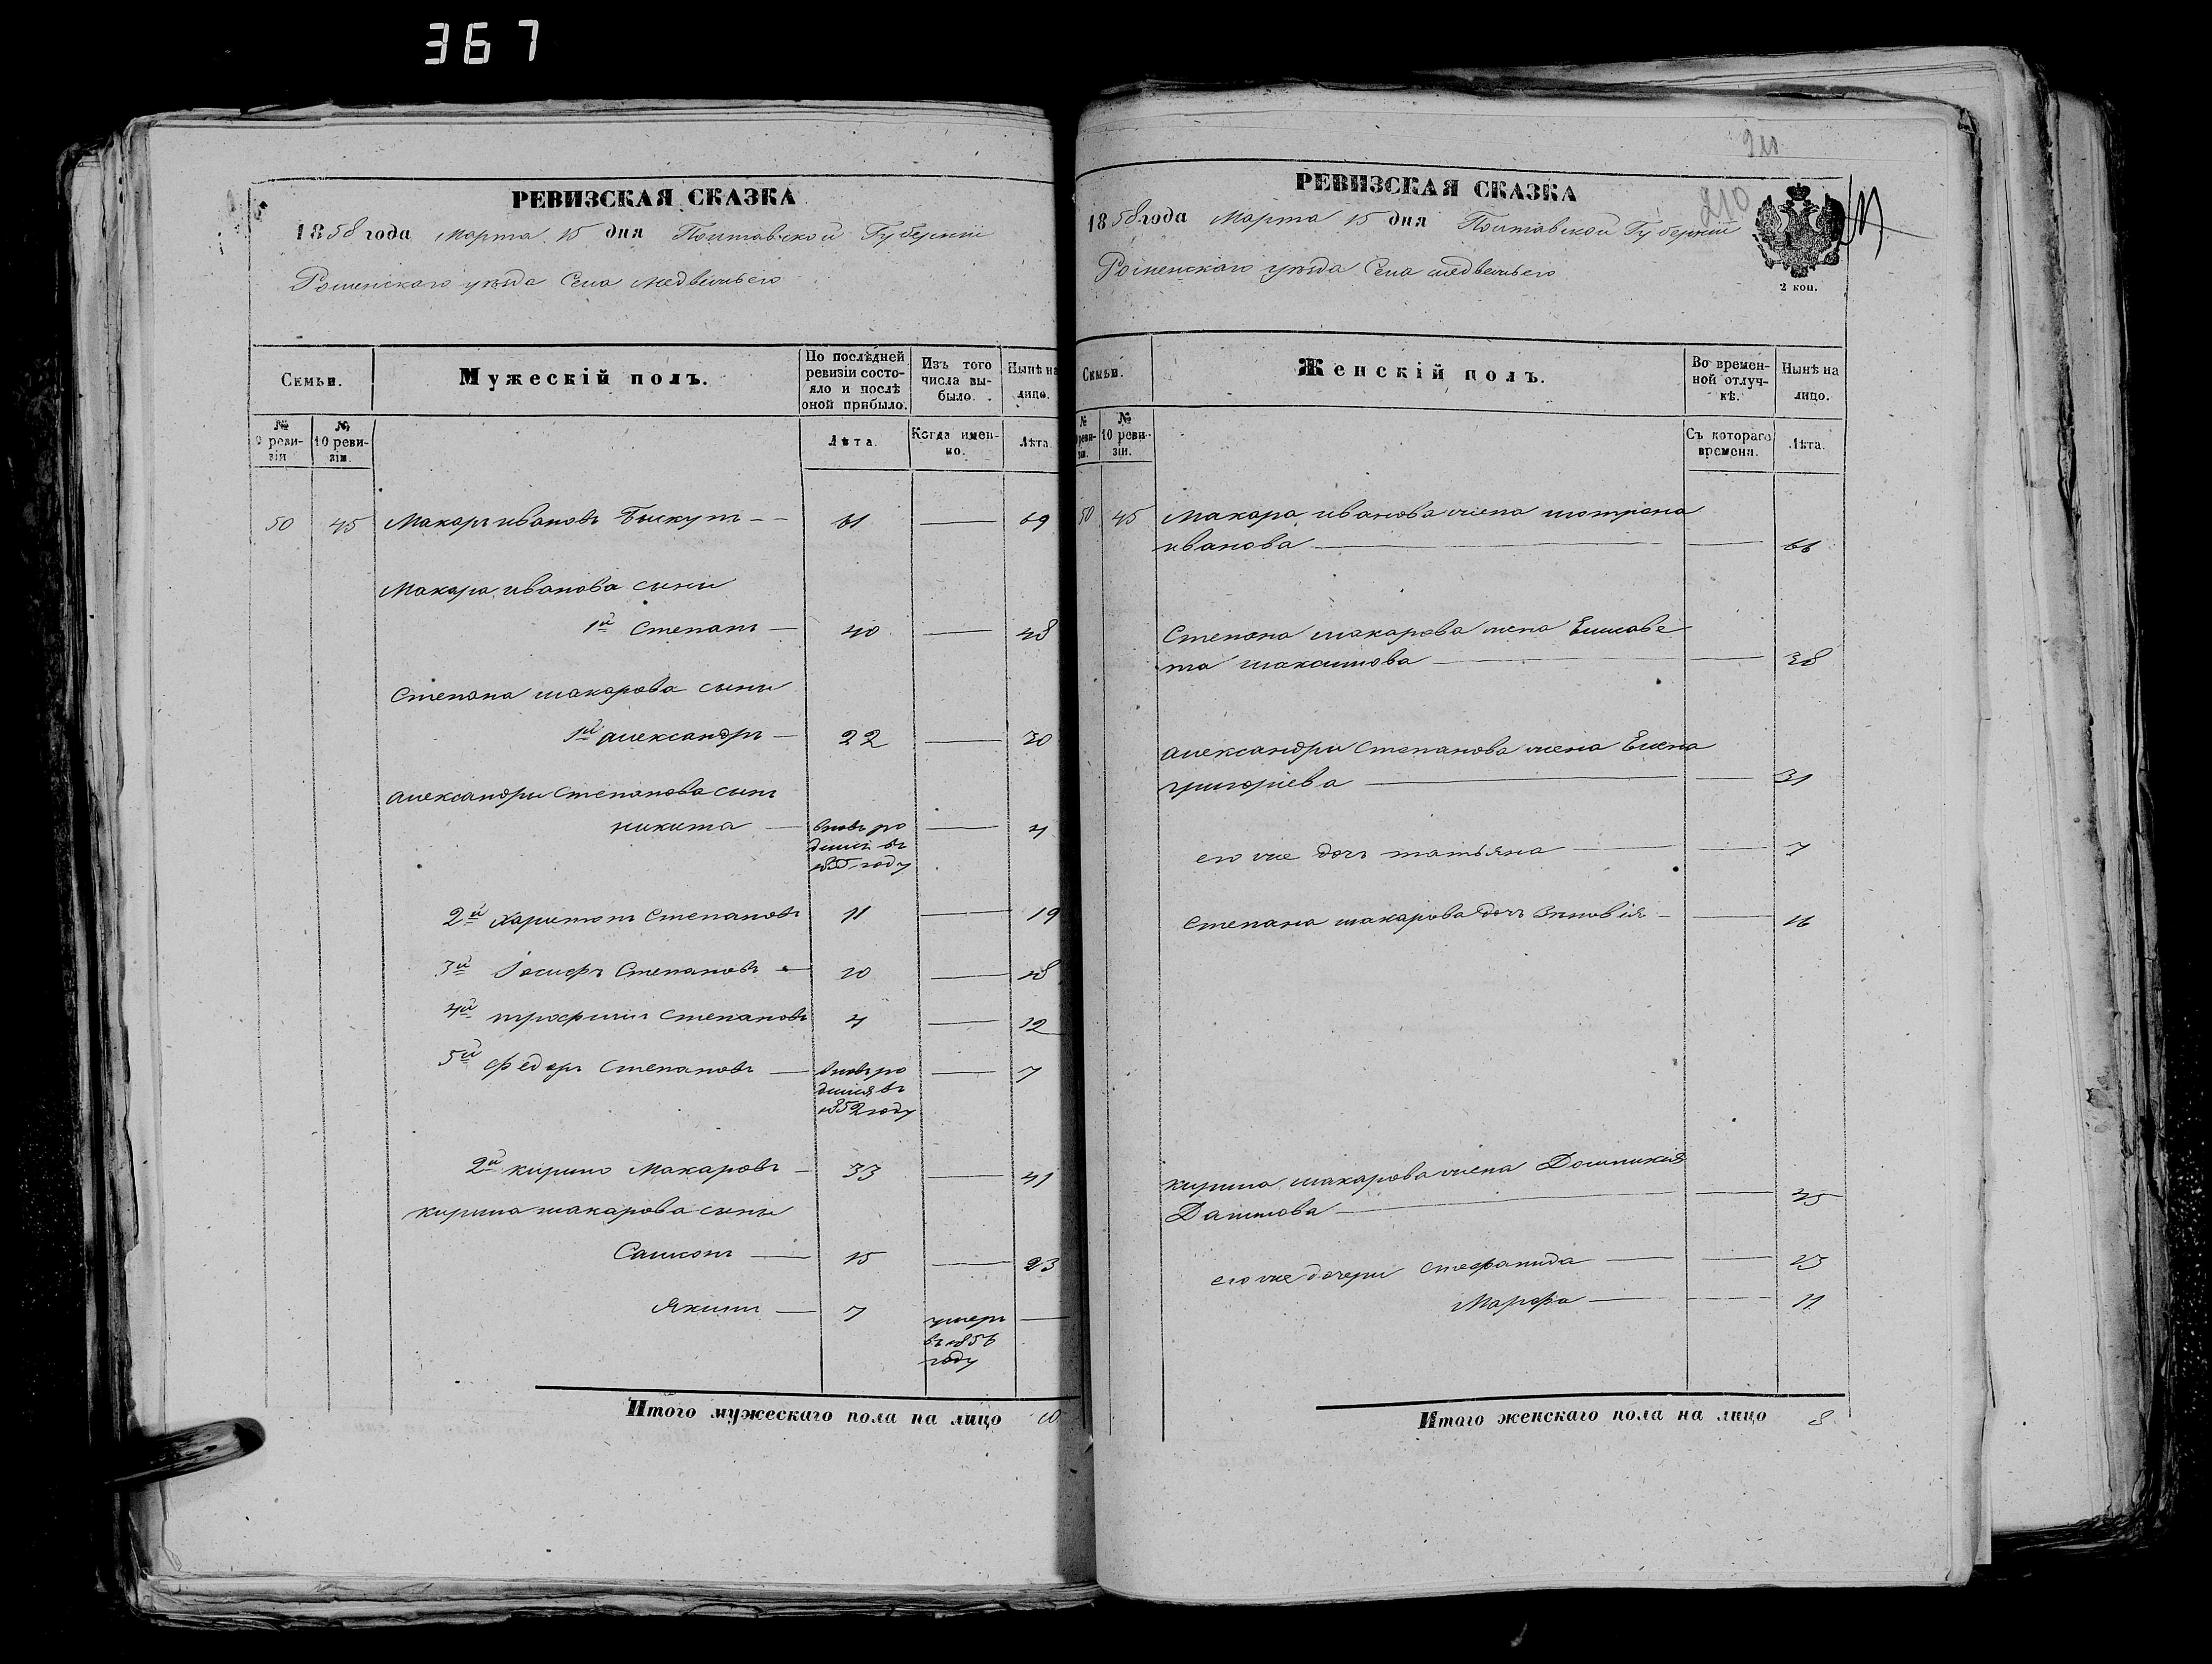 367
РЕВИЗСКАЯ СКАЗКА
1858 года Марта 15 дня Полтавской Губернiи
Роменскаго уѣзда Села Медвежьего
Семьи.
Мужескій полъ.
По послѣдней ревизіи состояло и послѣ оной прибыло.
Изъ того числа выбыло.
Нынѣ на лицо.
№ 9 ревизіи
№ 10 ревизіи.
Лѣта.
Когда именно.
Лѣта.
50 45 Макаръ ивановъ Быкутъ 61 69
Макара иванова сыны
1й Степанъ 40 48
Степана макарова сыны
1й александръ 22 30
александры степанова сынъ
никита вновь ро 4
дился въ
1855 году
2й харитонъ Степановъ 11 19
3й Іосифъ Степановъ 10 18
4й трофимъ Степановъ 4 12
5й федоръ Степановъ вновь ро 7
дился въ
1852 году
2й кирило Макаровъ 33 41
кирила макарова сыны
Самсонъ 15 23
Якимъ 7 умеръ
въ 1856
году
Итого мужескаго пола на лицо 10
210
210
РЕВИЗСКАЯ СКАЗКА
1858 года Марта 15 дня Полтавской Губернiи
Роменскаго уѣзда Села медвежьего
2 коп.
Семьи.
Женскій полъ.
Во временной отлучкѣ.
Нынѣ на лицо.
№ 9 ревизіи.
№ 10 ревизіи.
Съ котораго времени.
Лѣта.
50 45 Макара иванова жена мотрона
иванова 66
Степана макарова жена Елисаве
та максимова 38
александры степанова жена Елена
григоріева 31
его же дочь татьяна 7
степана макарова дочь Зиновія 16
кирила макарова жена Домникія
Данилова 45
его же дочери стефанида 15
Марфа 11
Итого женскаго пола на лицо 8